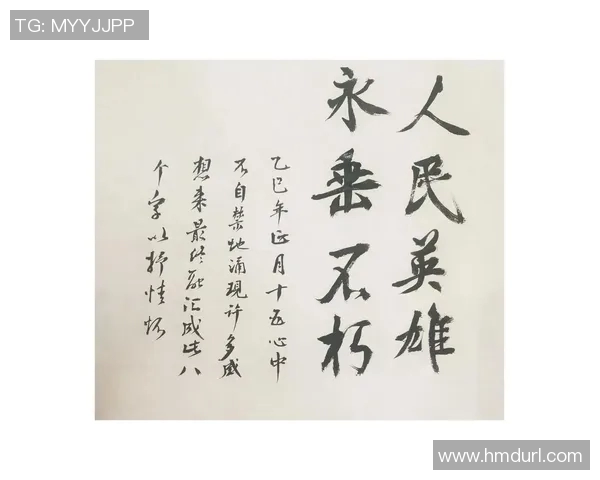 TG: MYYJJPP
人民英雄
永垂不朽
乙巳年正月十五心中
不自禁地涌现许多感
想来最终能汇成此八
个字以抒情怀
www.hmdurl.com